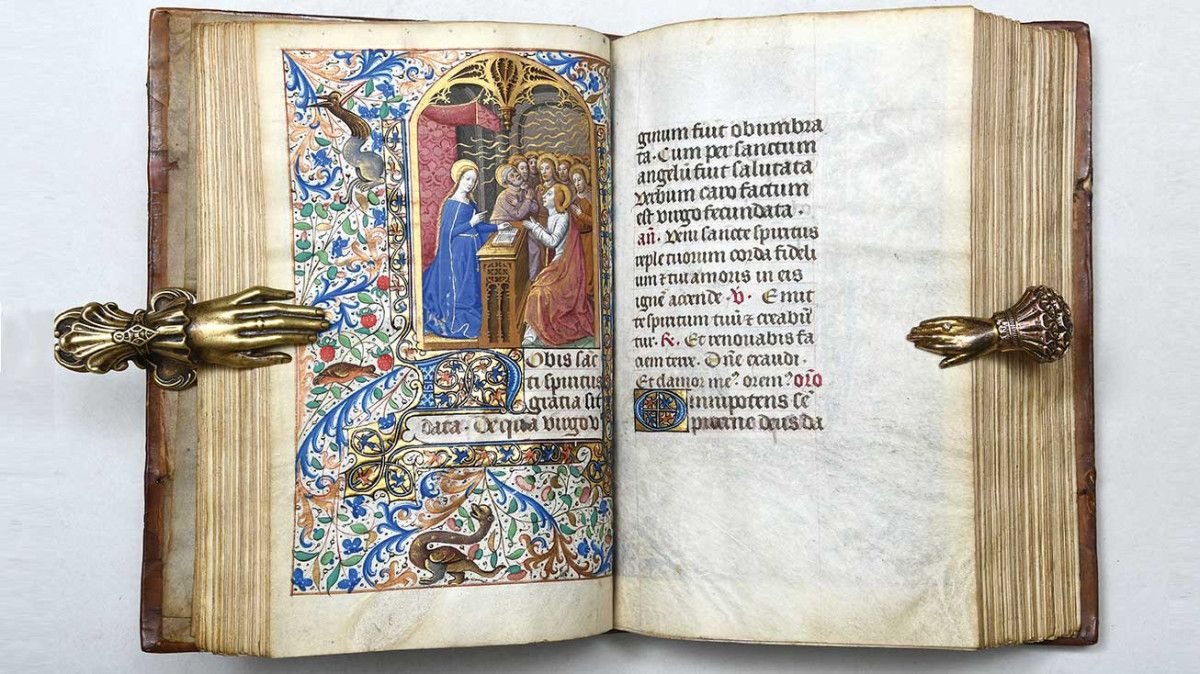 NObis sāc
ti spiritus
gratia sit
data. De qua virgo v
ginum fuit obumbra
ta. Cum per sanctum
angelū fuit salutata
Verbum caro factum
est virgo fecundata.
añ. Veni sancte spiritus
reple tuorum corda fideli
um ⁊ tui amoris in eis
ignē accende. V. Emit
te spiritum tuū ⁊ creabūt
tur. R. Et renovabis fa
ciem terre. Dñe exaudi.
Et clamor meꝰ oremꝰ orō
Omnipotens sē
piterne deus da